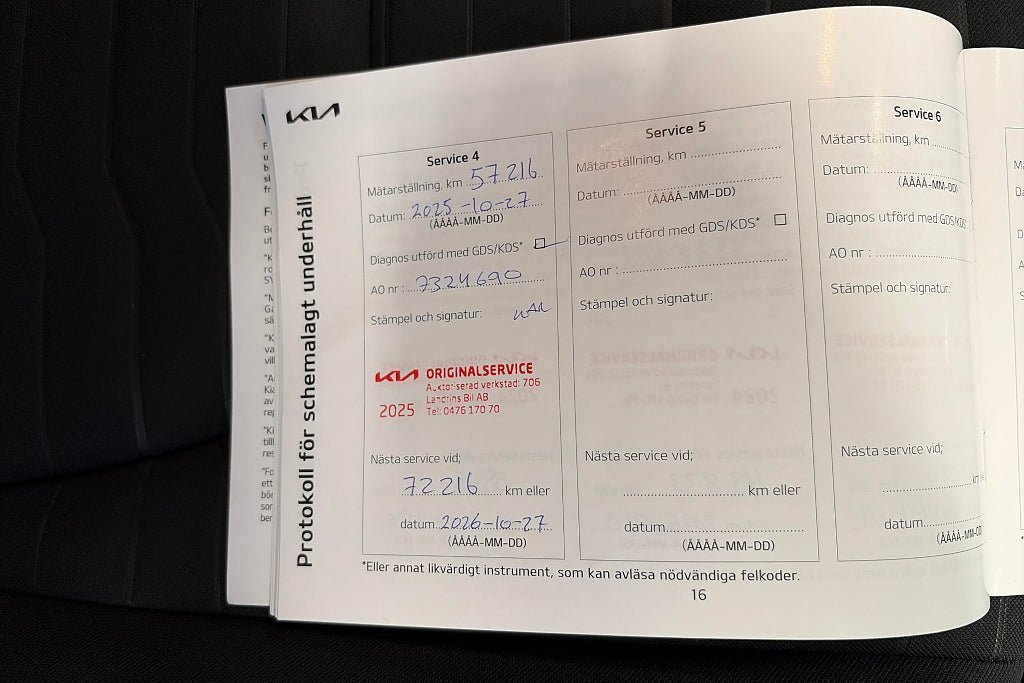 KIA
Protokoll för schemalagt underhåll
Service 4
Mätarställning, km 57216
Datum: 2025-10-27
(ÅÅÅÅ-MM-DD)
Diagnos utförd med GDS/KDS*
AO nr : 7324690
Stämpel och signatur:
KIA ORIGINALSERVICE
Auktoriserad verkstad: 706
Landrins Bil AB
2025 Tel: 0476 170 70
Nästa service vid;
72216 km eller
datum 2026-10-27
(ÅÅÅÅ-MM-DD)
Service 5
Mätarställning, km
Datum:
(ÅÅÅÅ-MM-DD)
Diagnos utförd med GDS/KDS*
AO nr :
Stämpel och signatur:
Nästa service vid;
km eller
datum
(ÅÅÅÅ-MM-DD)
Service 6
Mätarställning, km
Datum:
(ÅÅÅÅ-MM-DD)
Diagnos utförd med GDS/KDS
AO nr :
Stämpel och signatur:
Nästa service vid;
datum
(ÅÅÅÅ-MM-DD)
*Eller annat likvärdigt instrument, som kan avläsa nödvändiga felkoder.
16